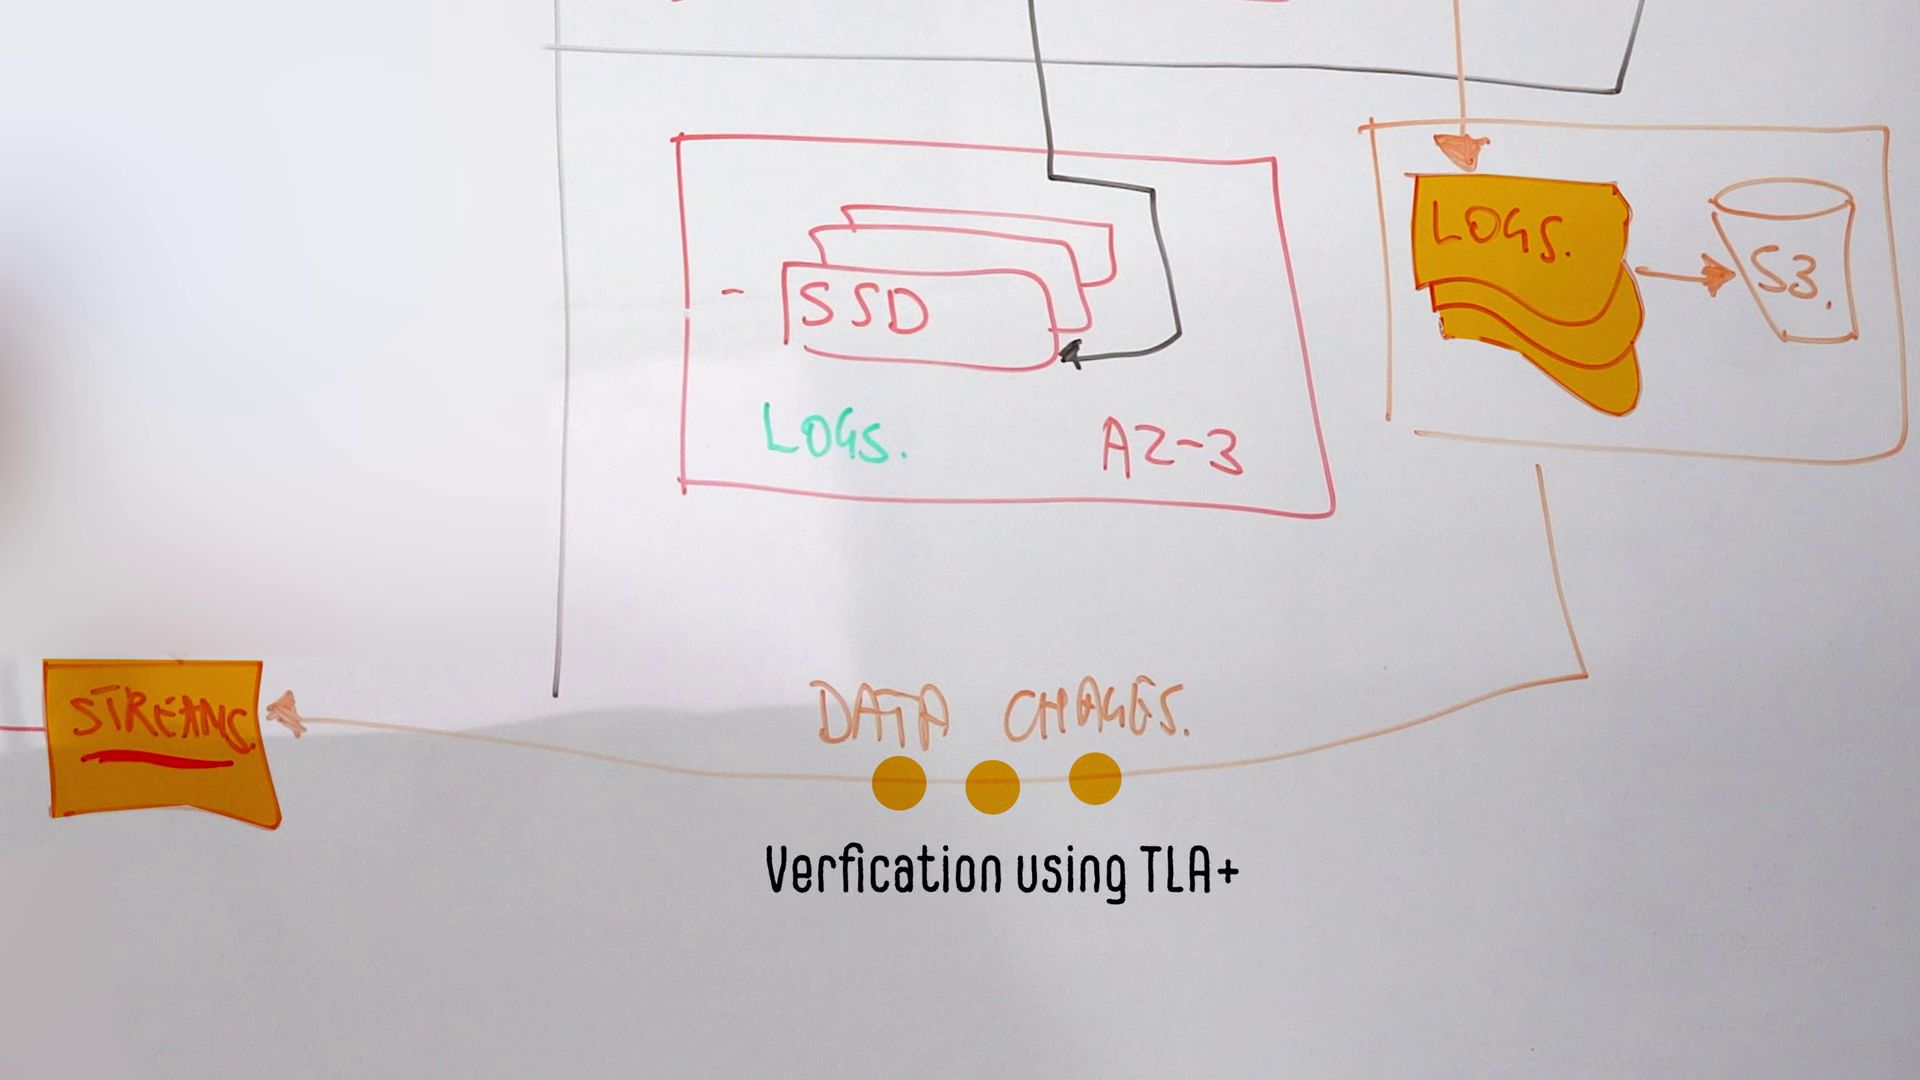 SSD
LOGS.
AZ-3
LOGS.
S3.
STREAMS.
DATA CHAGES.
Verfication using TLA+